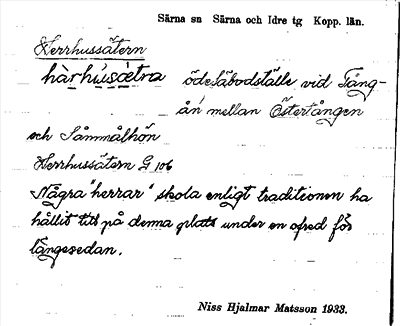 Särna sn Särna och Idre tg Kopp. län.
Herrhussätern
hàrhúsætra ödesäbodställe vid Fång-
ån mellan Österfången
och Såmmålhön
Herrhussätern G 106
Några "herrar" skola enligt traditionen ha
hållit till på denna plats under en ofred för
längesedan.
Niss Hjalmar Matsson 1933.